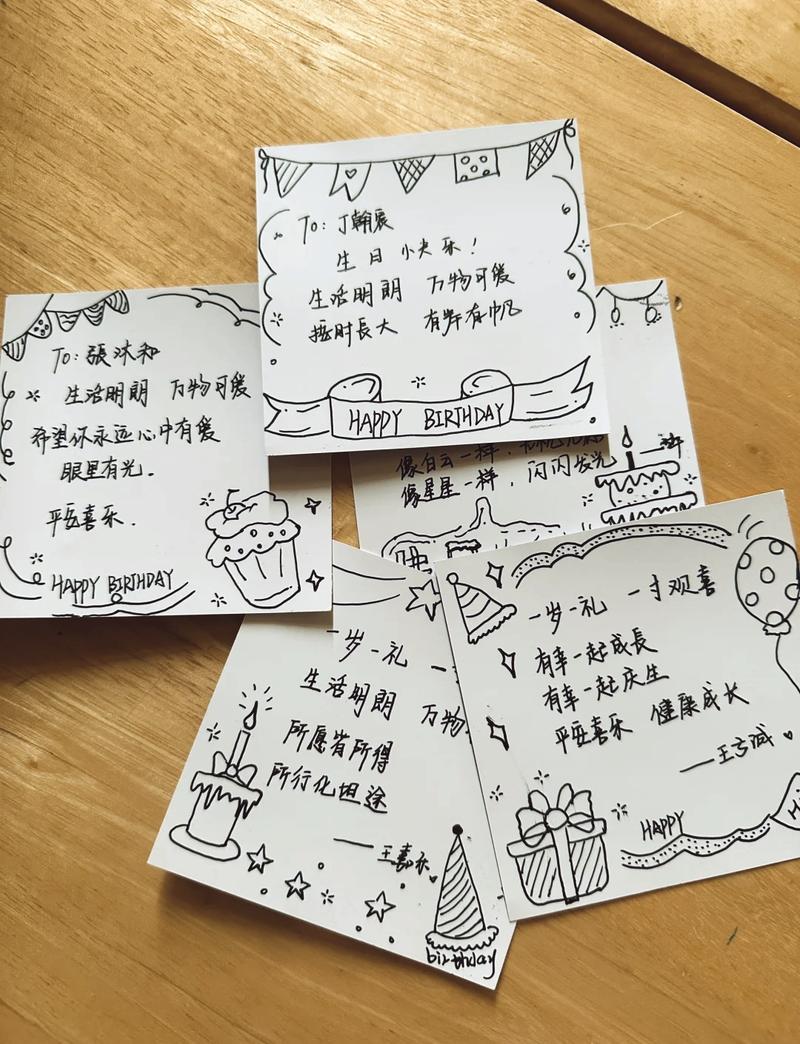 To: 丁翰宸
生日小快乐！
生活明朗 万物可爱
按时长大 有岸有帆
HAPPY BIRTHDAY
To: 張沐和
生活明朗 万物可爱
希望你永远心中有爱
眼里有光.
平安喜乐.
HAPPY BIRTHDAY
像白云一样,
像星星一样, 闪闪发光
一岁一礼 一
生活明朗 万物
所愿皆所得
所行化坦途
——王嘉乐
birthday
一岁一礼 一寸欢喜
有幸一起成長
有幸一起庆生
平安喜乐 健康成长
HAPPY